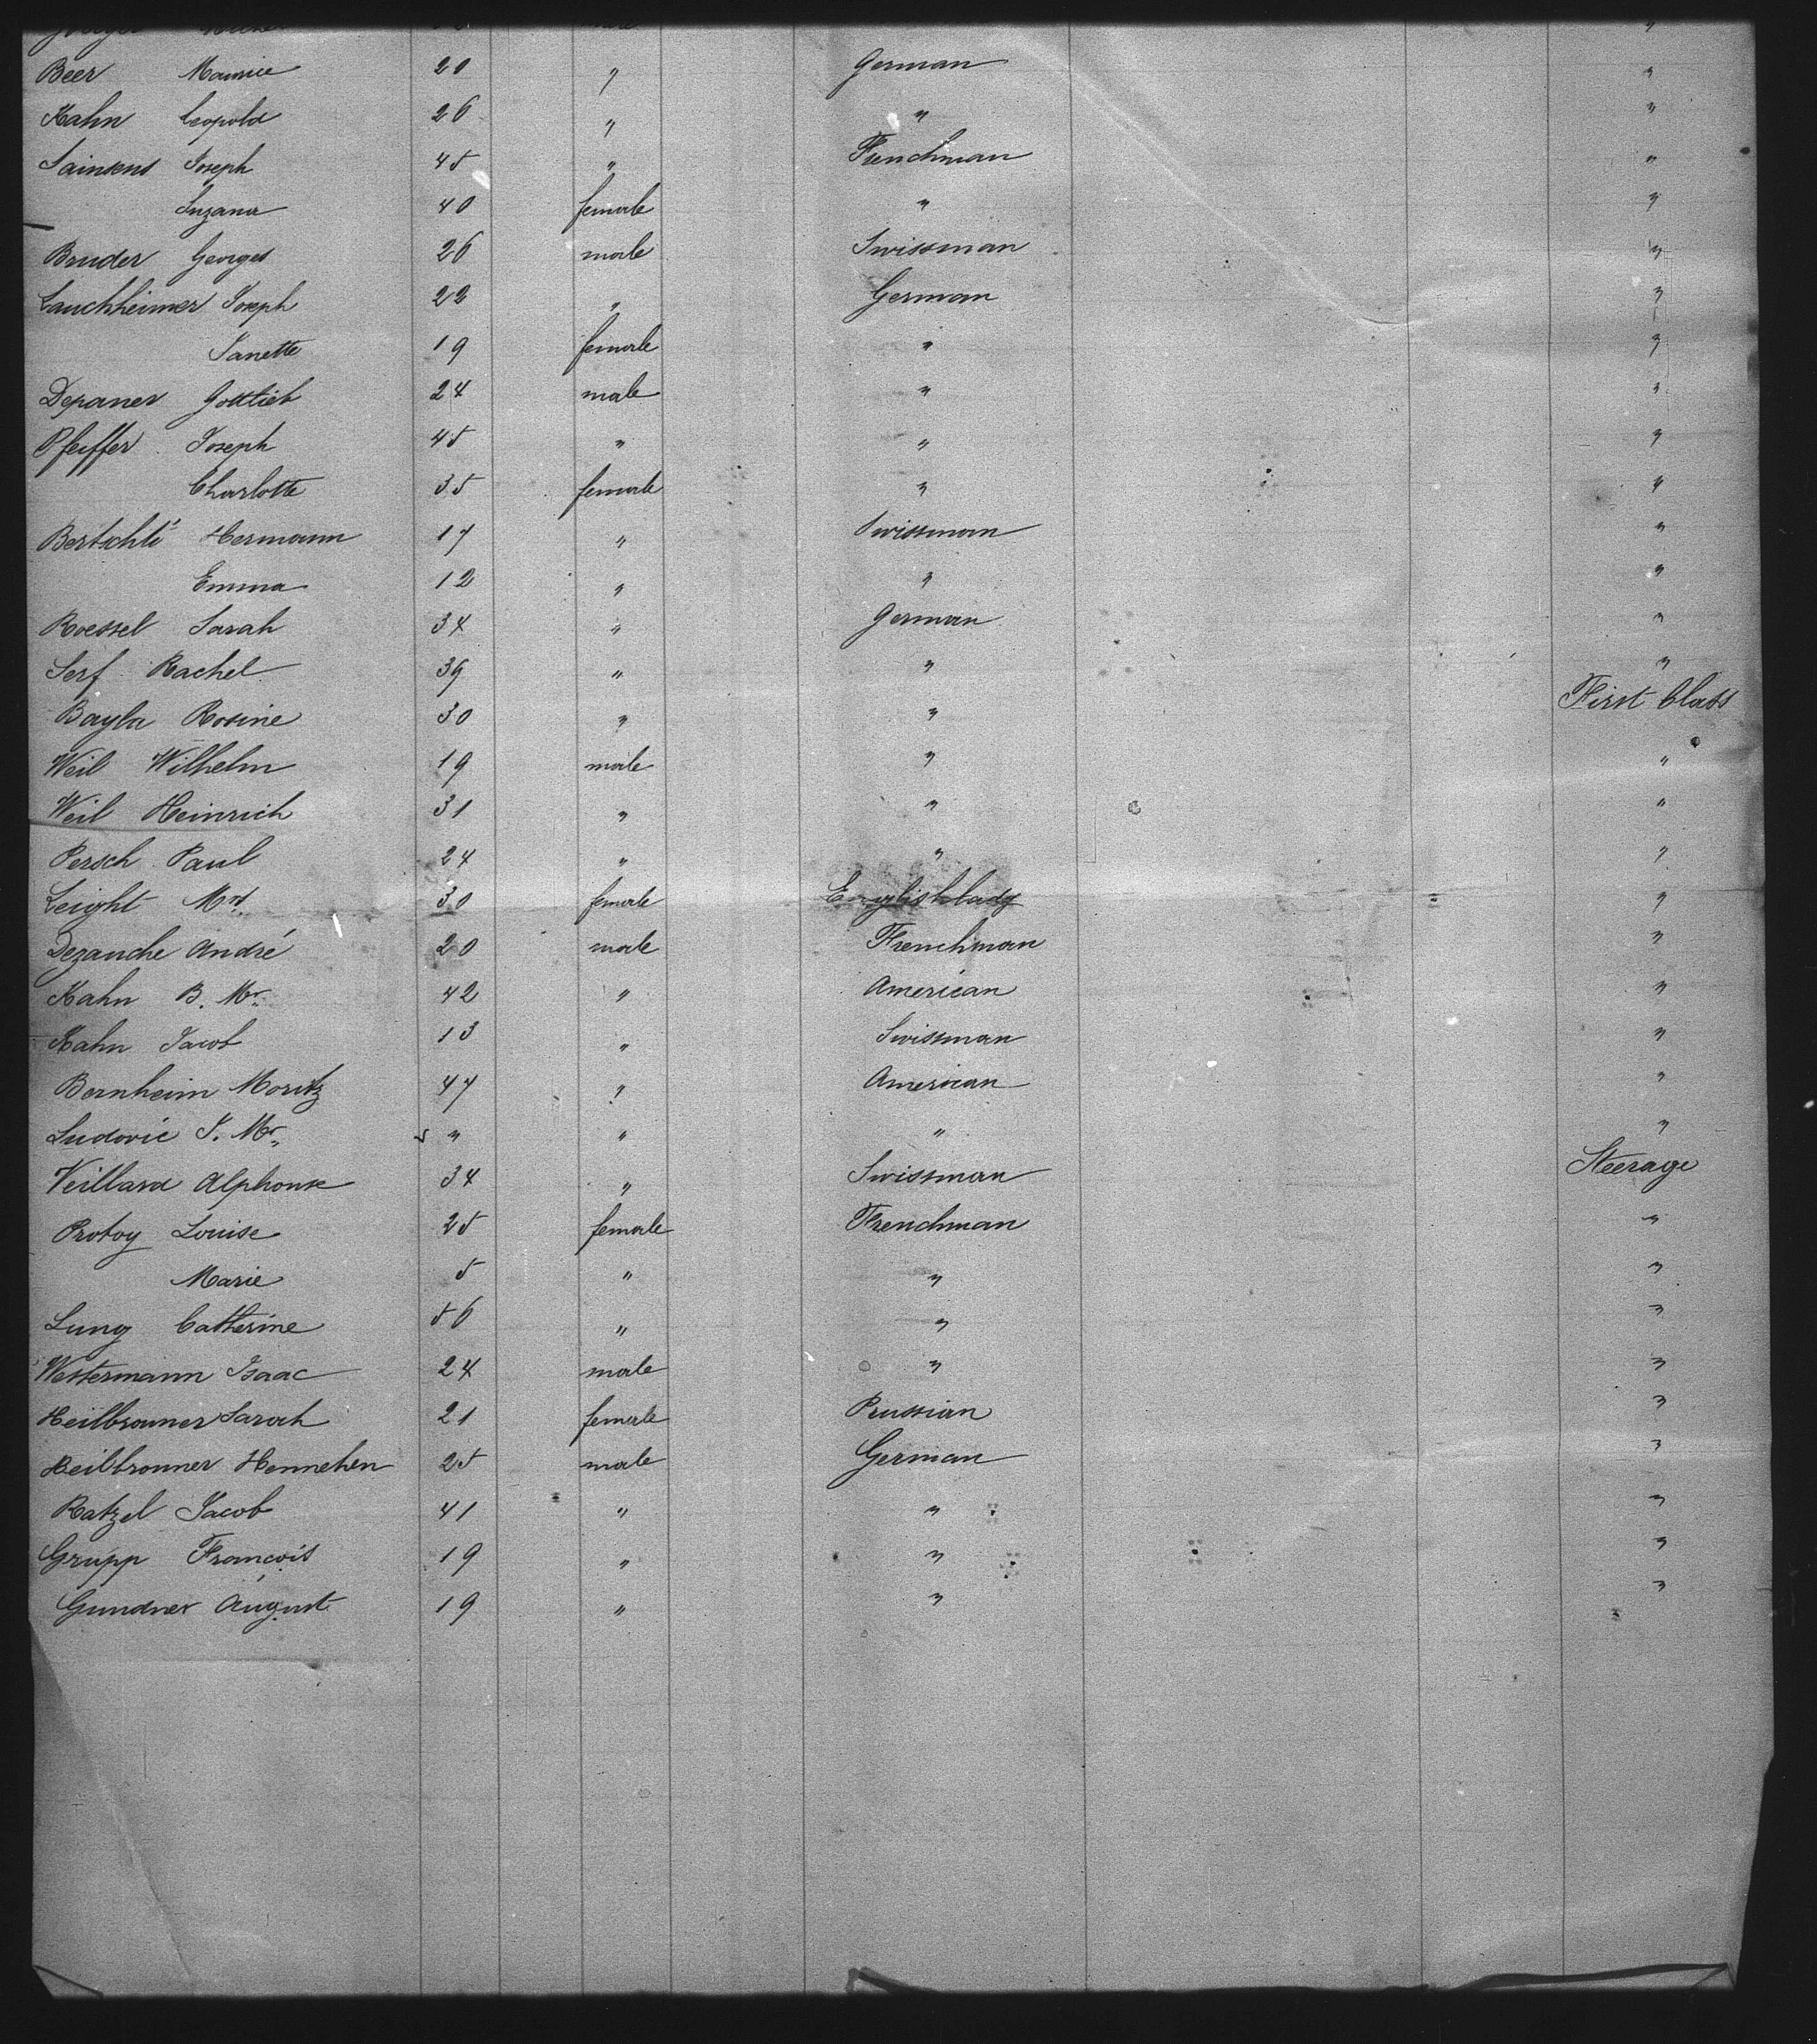 Beer Maurice 20 " German "
Kahn Leopold 26 " " "
Sainsens Joseph 45 " Frenchman "
Suzana 40 female " "
Bruder Georges 26 male Swissman "
Lauchheimer Joseph 22 " German "
Janette 19 female " "
Depaner Gottlieb 24 male " "
Pfeiffer Joseph 45 " " "
Charlotte 35 female " "
Hermann 17 " Swissman "
Emma 12 " " "
Roessel Sarah 34 " German "
Serf Rachel 39 " " "
Bayla Rosine 30 " " First Class
Weil Wilhelm 19 male " "
Weil Heinrich 31 " " "
Persch Paul 24 " " "
Leight Mrs. 30 female English lady "
Dezauche André 20 male Frenchman "
Kahn B. Mr. 42 " American "
Kahn Jacob 13 " Swissman "
Bernheim Moritz 47 " American "
Ludovic J. Mr. " " " "
Veillard Alphonse 34 " Swissman Steerage
Protoy Louise 25 female Frenchman "
Marie 5 " " "
Lung Catherine 56 " " "
Westermann Isaac 24 male " "
Heilbronner Sarah 21 female Prussian "
Heilbronner Hennehen 25 male German "
Ratzel Jacob 41 " " "
Grupp François 19 " " "
Gundner August 19 " " "